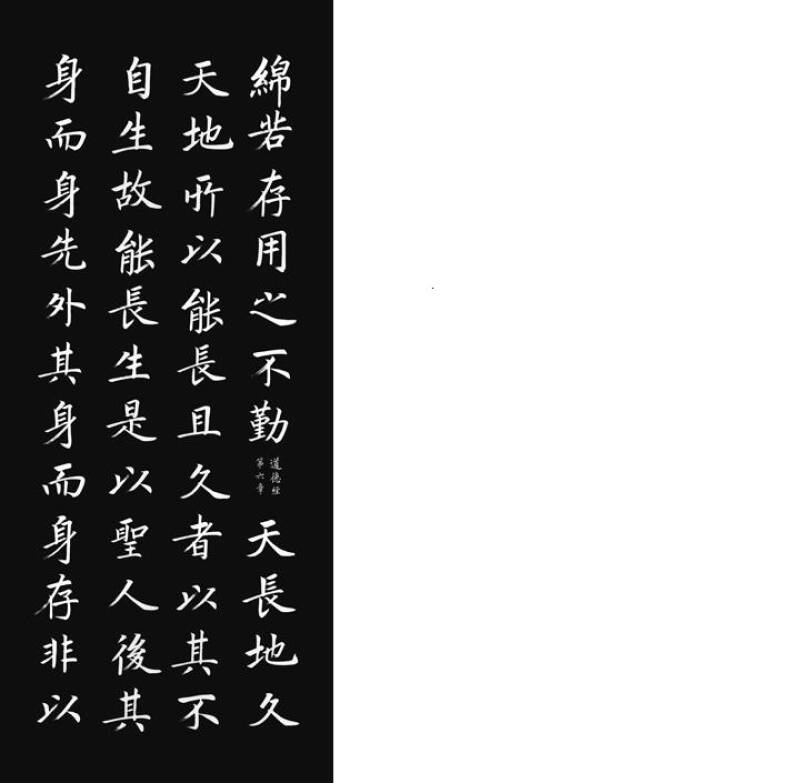 綿若存用之不勤道德經第六章天長地久
天地所以能長且久者以其不
自生故能長生是以聖人後其
身而身先外其身而身存非以